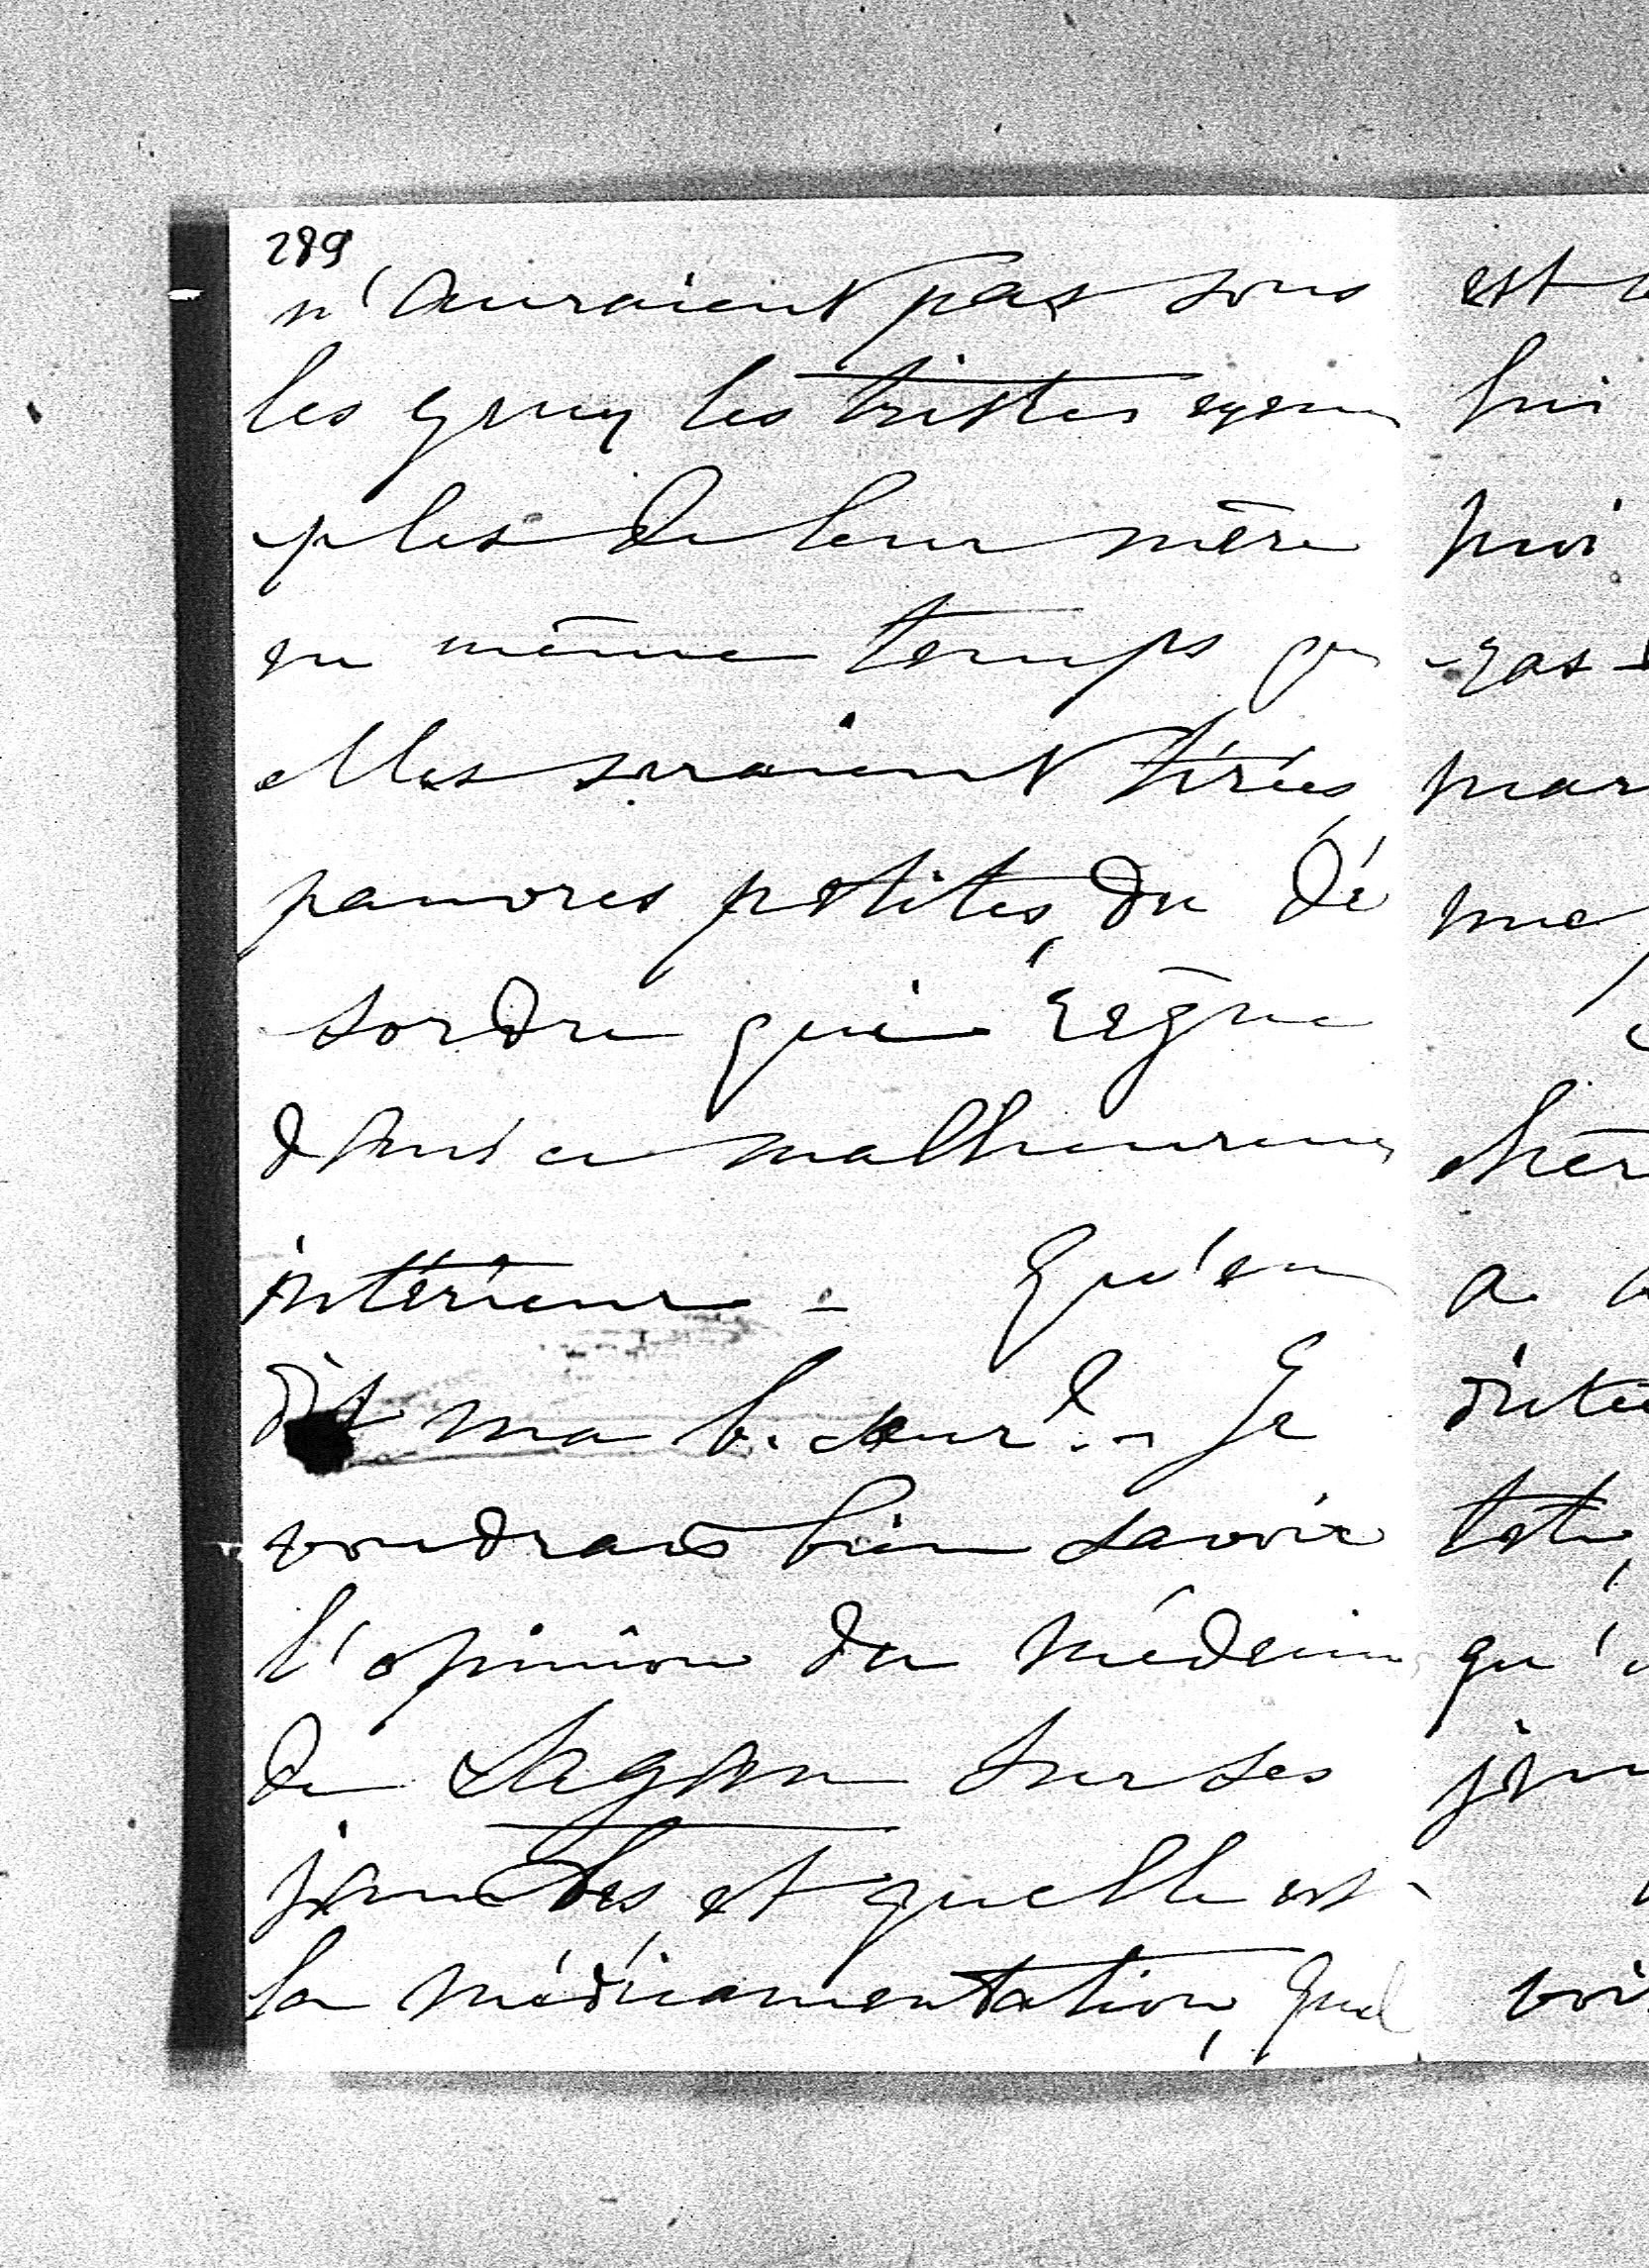 289
n'auraient pas sous
les yeux les tristes exem
ples de leur mère
en même temps qu
elles seraient tirées,
pauvres petites, du dé
sordre qui règne
dans ce malheureux
intérieur - Qu'en
dit ma b. sœur ? - Je
voudrais bien savoir
l'opinion du médecin
de Sagan sur ses
jambes, et quelle est
la médicamentation, Quel
est
lui
puis
ras
mar
me
chèr
a
tête,
qu'
jou
voi